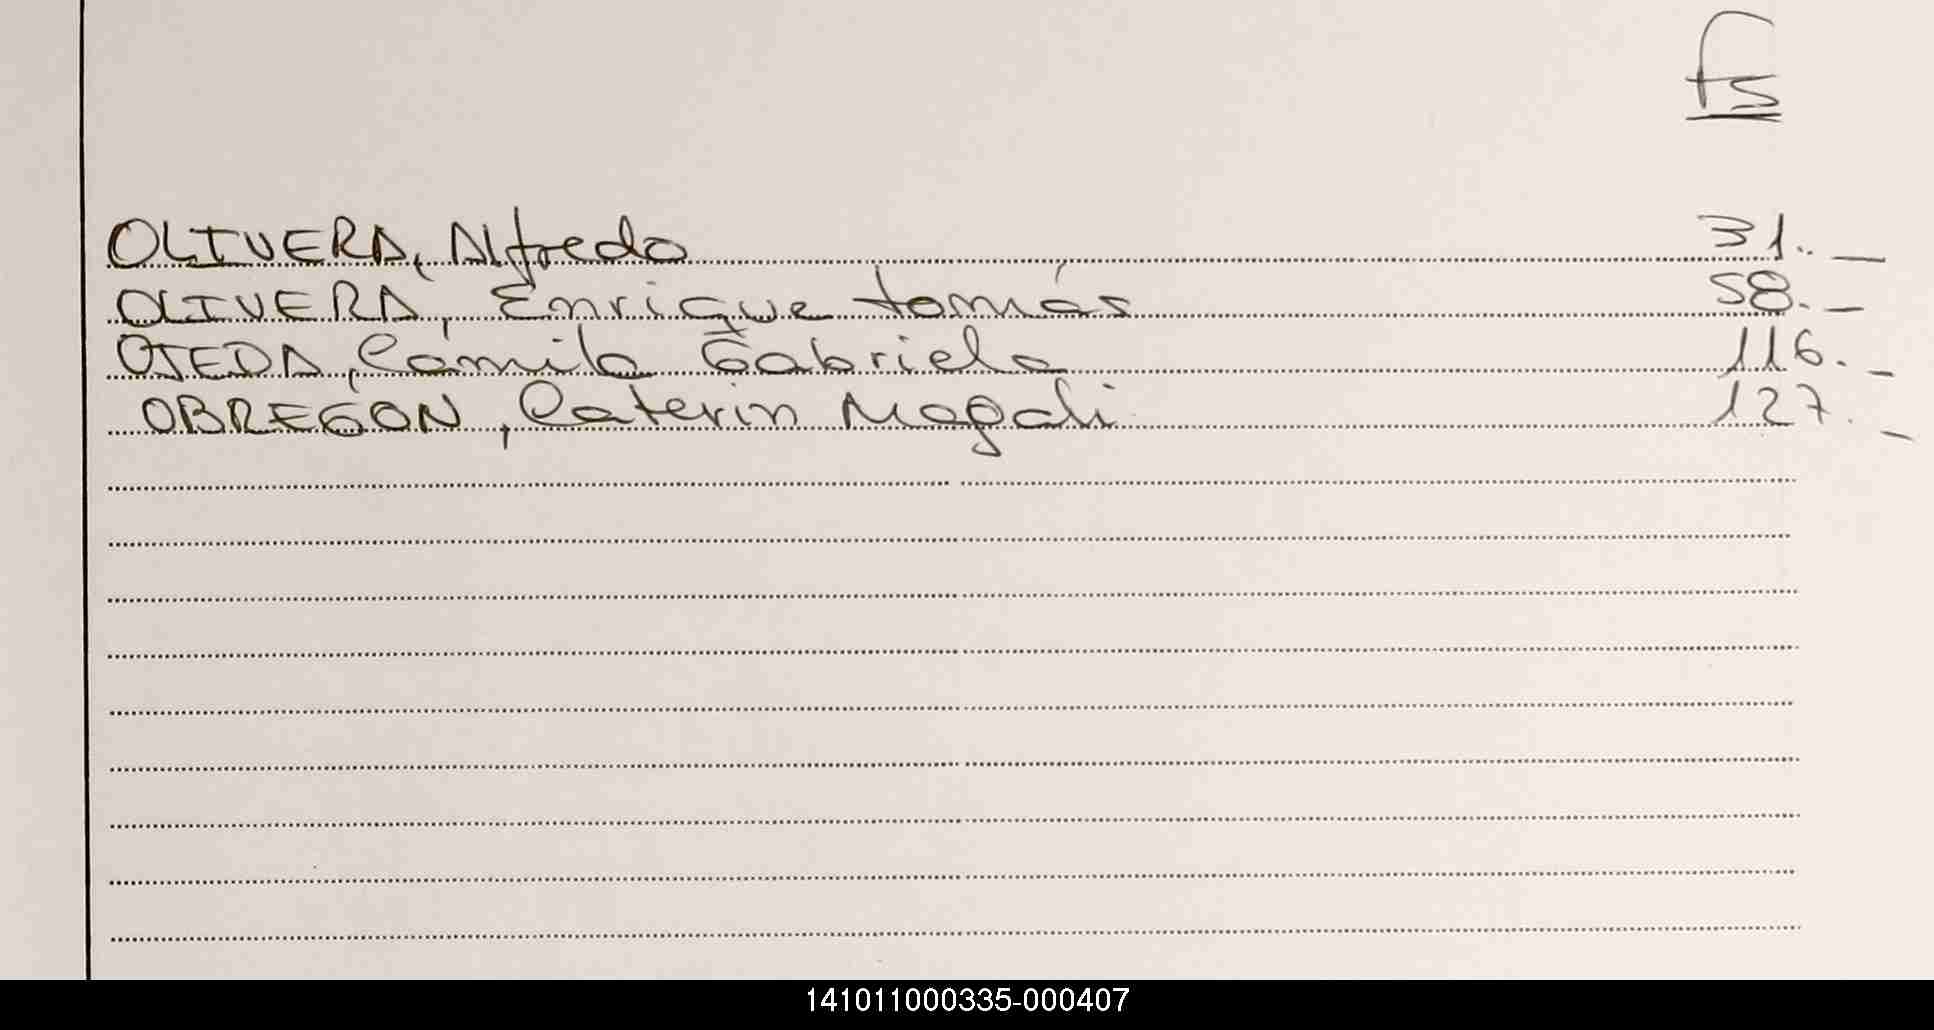 fs
OLIVERA, Alfredo 31. _
OLIVERA, Enrique tomás 58. _
OJEDA, Camila Gabriela 116. _
OBREGON, Caterin Magali 127. _
141011000335-000407